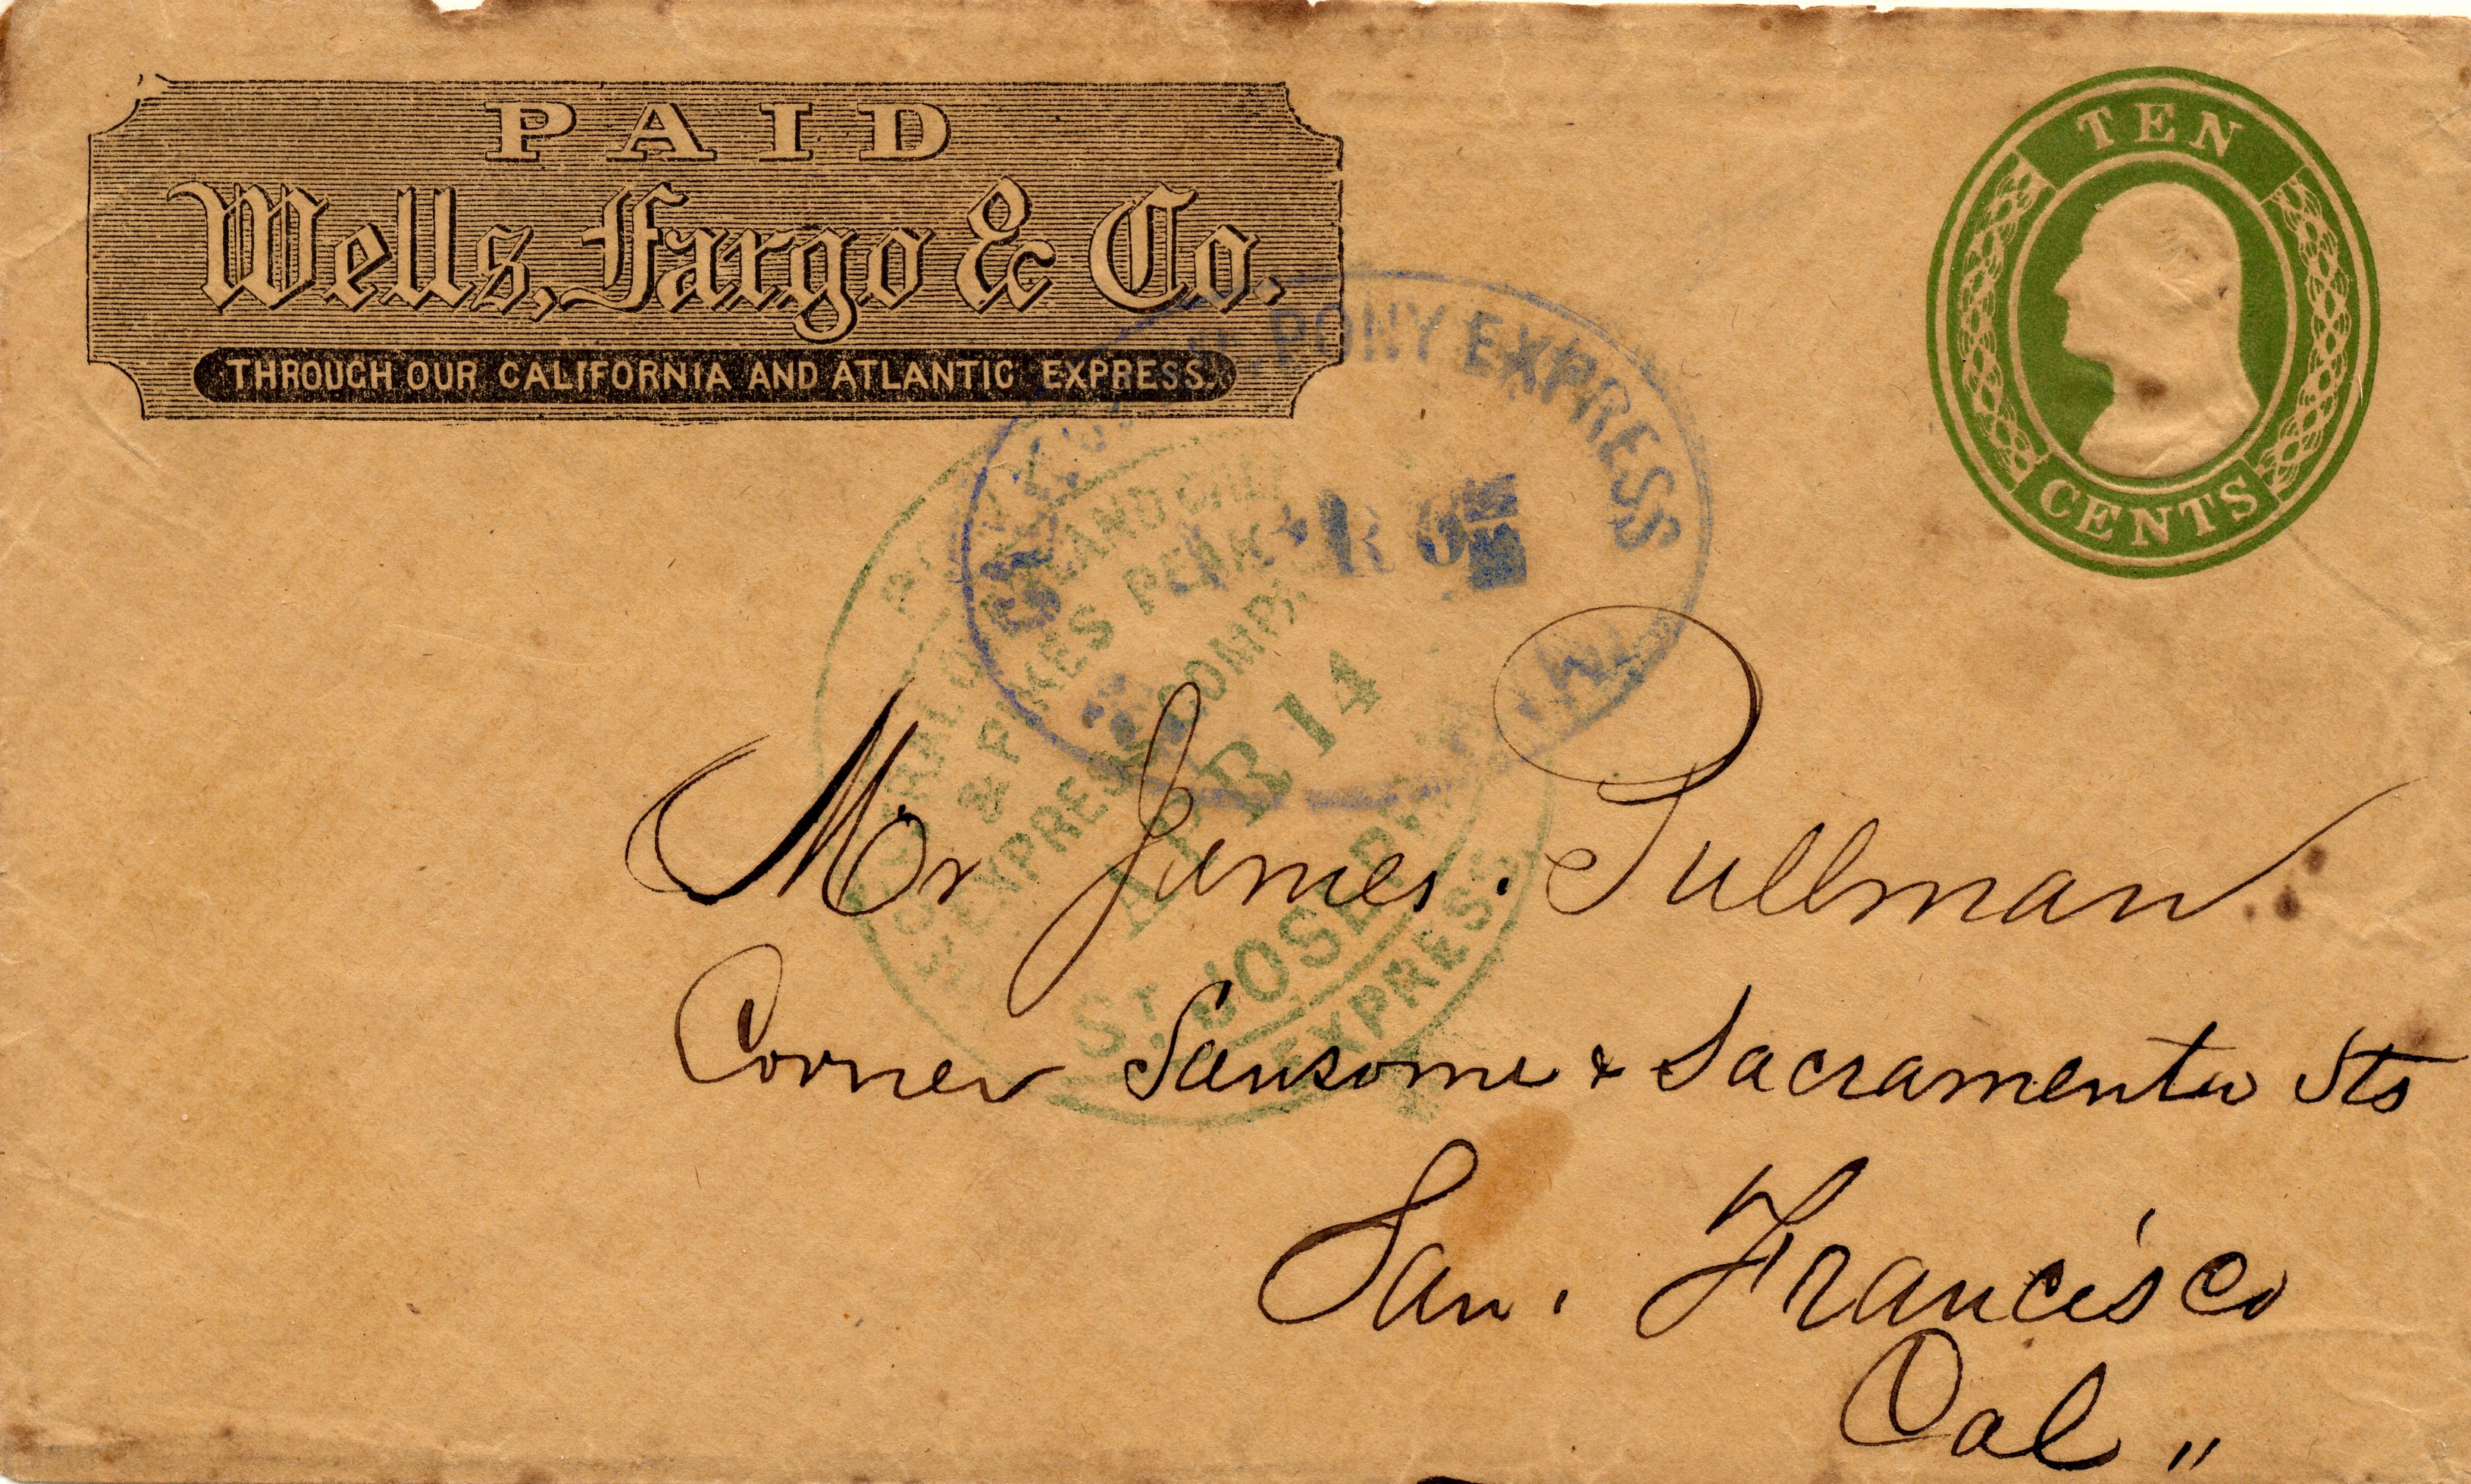 PAID
Wells, Fargo & Co.
THROUGH OUR CALIFORNIA AND ATLANTIC EXPRESS.
TEN
CENTS
PONY EXPRESS
CENTRAL OVERLAND
& PIKES PEAK
EXPRESS COMPANY
APR 14
ST JOSEPH
EXPRESS
Mr James. Pullman
Corner Sansome & Sacramento Sts
San. Francisco
Cal "